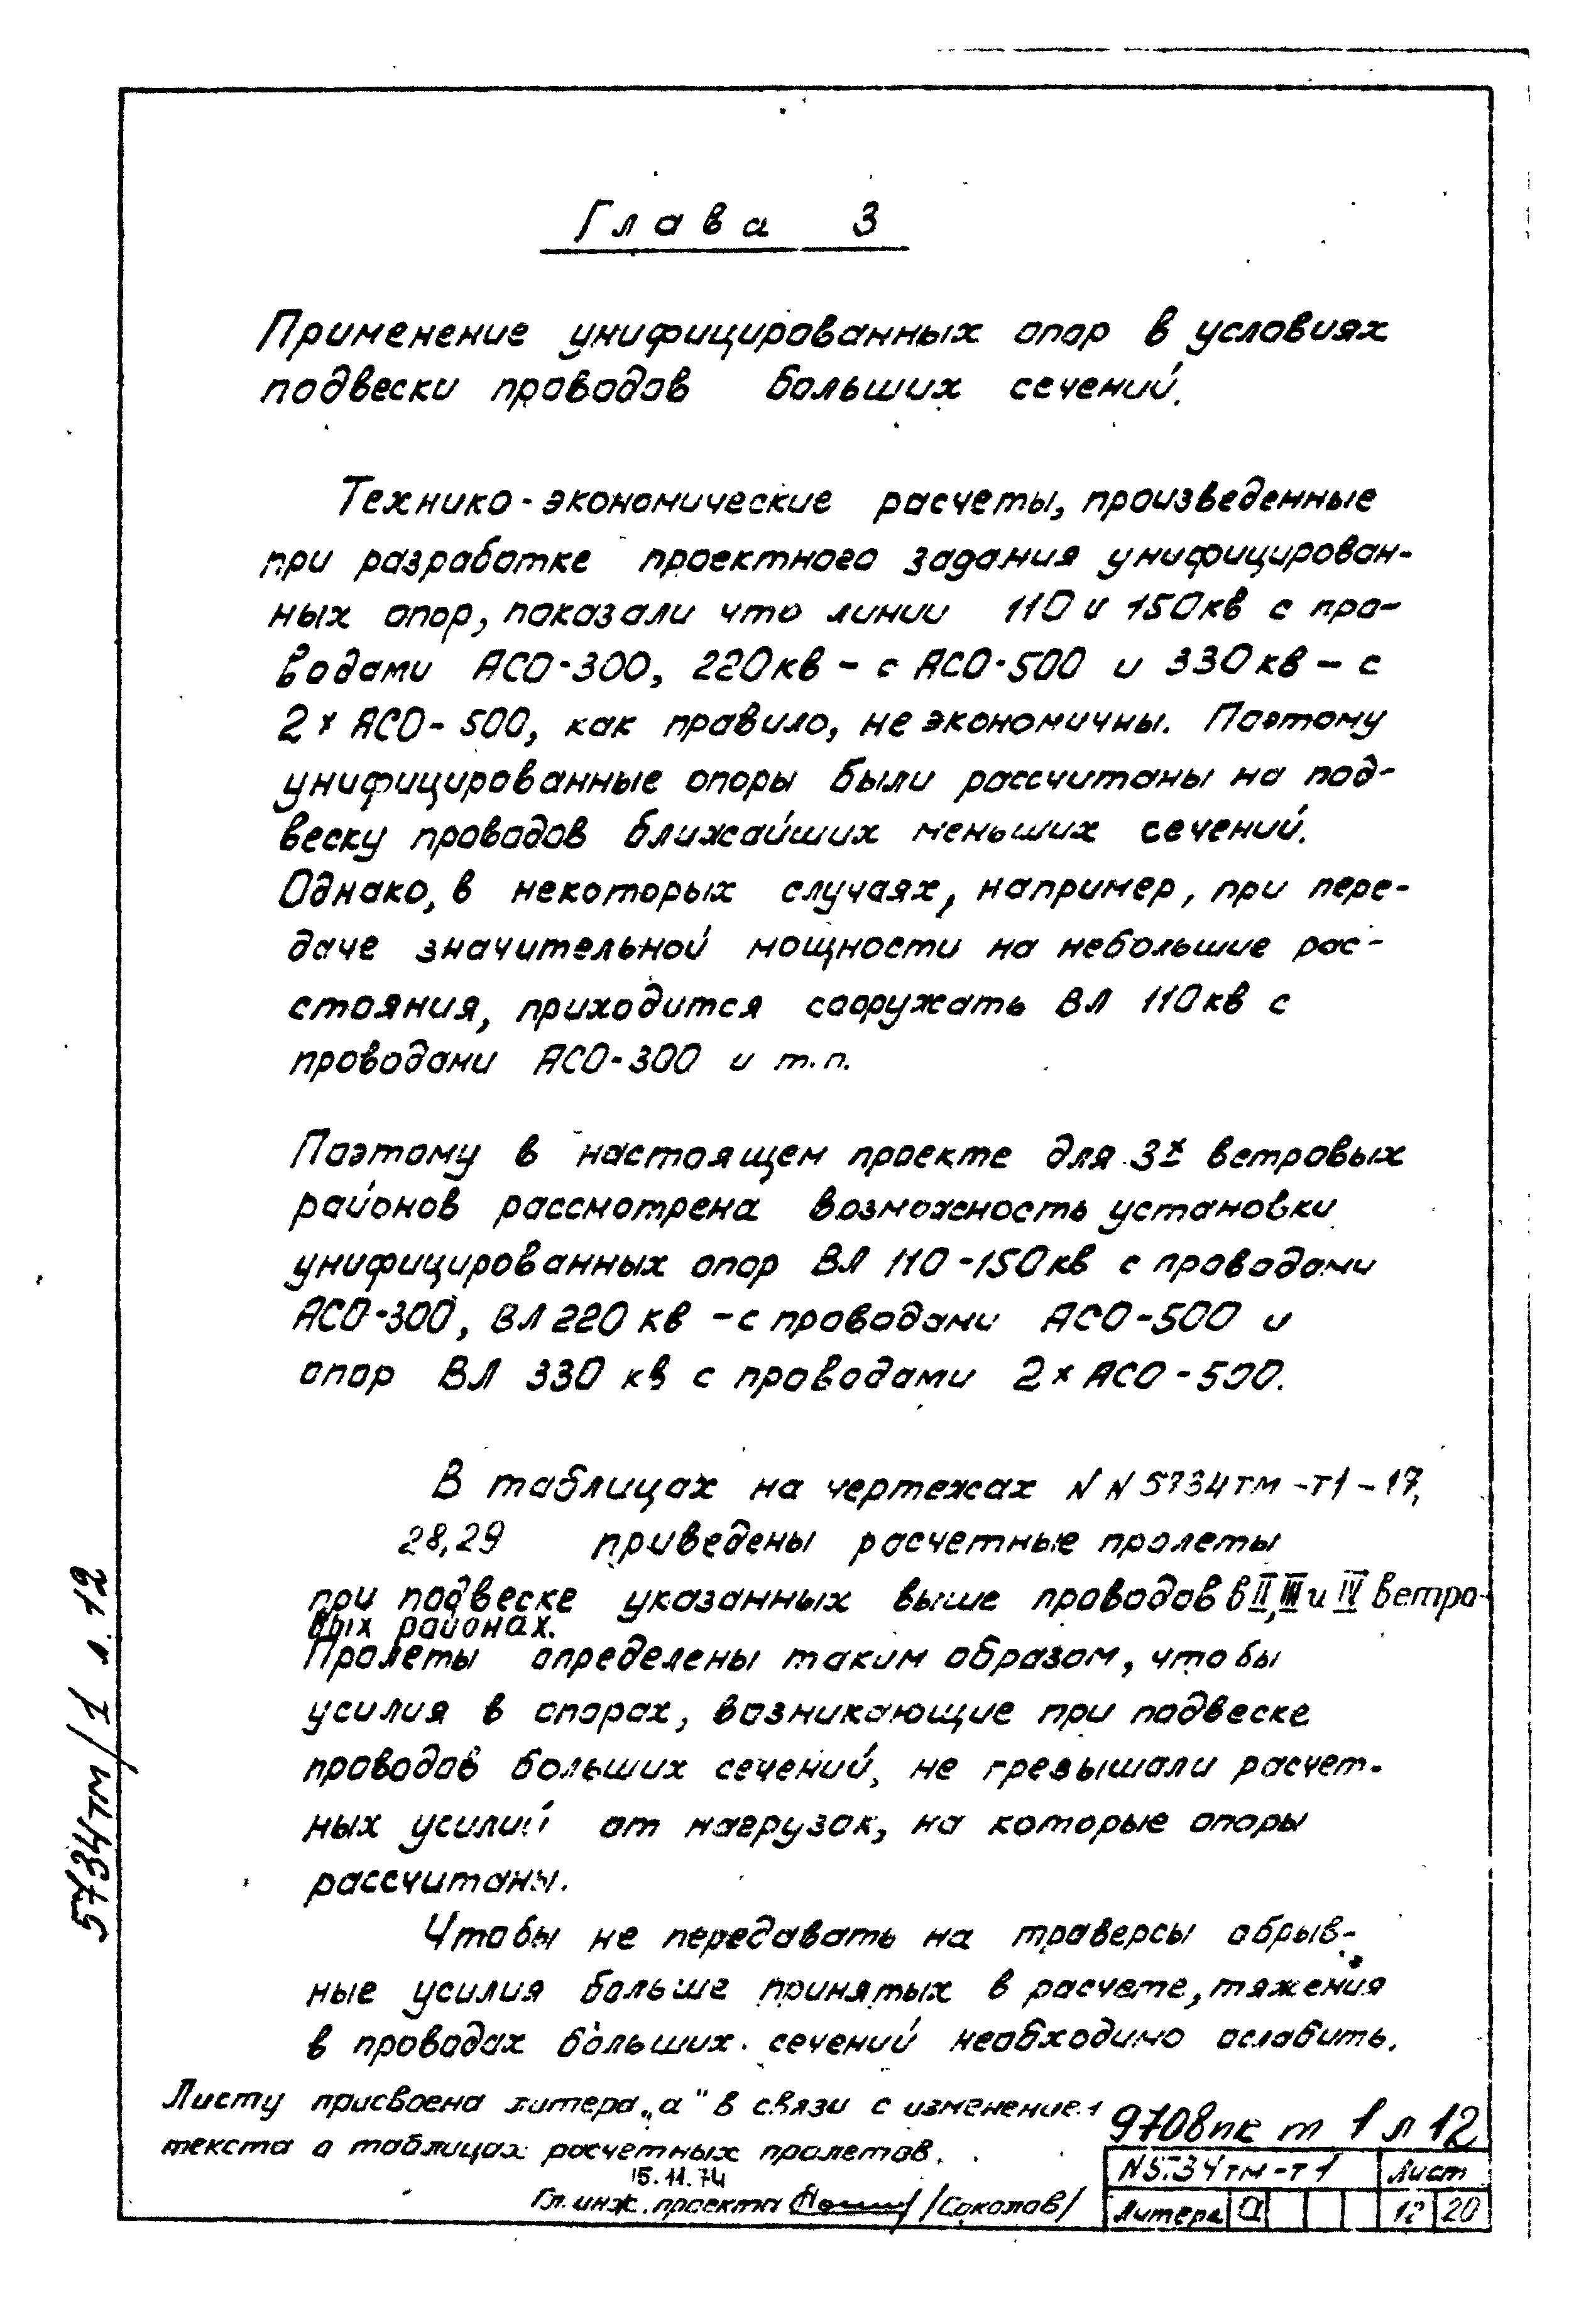 Глава 3
Применение унифицированных опор в условиях
подвески проводов больших сечений.
Технико-экономические расчеты, произведенные
при разработке проектного задания унифицирован-
ных опор, показали что линии 110 и 150кв с про-
водами АСО-300, 220кв - с АСО-500 и 330кв - с
2 × АСО-500, как правило, не экономичны. Поэтому
унифицированные опоры были рассчитаны на под-
веску проводов ближайших меньших сечений.
Однако, в некоторых случаях, например, при пере-
даче значительной мощности на небольшие рас-
стояния, приходится сооружать ВЛ 110кв с
проводами АСО-300 и т.п.
Поэтому в настоящем проекте для 3х ветровых
районов рассмотрена возможность установки
унифицированных опор ВЛ 110-150кв с проводами
АСО-300, ВЛ 220 кв - с проводами АСО-500 и
опор ВЛ 330 кв с проводами 2 × АСО-500.
В таблицах на чертежах NN 5734тм-т1-17,
28,29 приведены расчетные пролеты
при подвеске указанных выше проводов в II, III и IV ветро-
вых районах.
Пролеты определены таким образом, чтобы
усилия в опорах, возникающие при подвеске
проводов больших сечений, не превышали расчет-
ных усилий от нагрузок, на которые опоры
рассчитаны.
Чтобы не передавать на траверсы обрыв-
ные усилия больше принятых в расчете, тяжения
в проводах больших сечений необходимо ослабить.
Листу присвоена литера „а" в связи с изменением
текста о таблицах расчетных пролетов.
15.11.74
Гл. инж. проекта /Соколов/
9708пк т 1 л 12
N5734тм-т1 Лист
Литера а 12 20
5734тм/1 л. 12